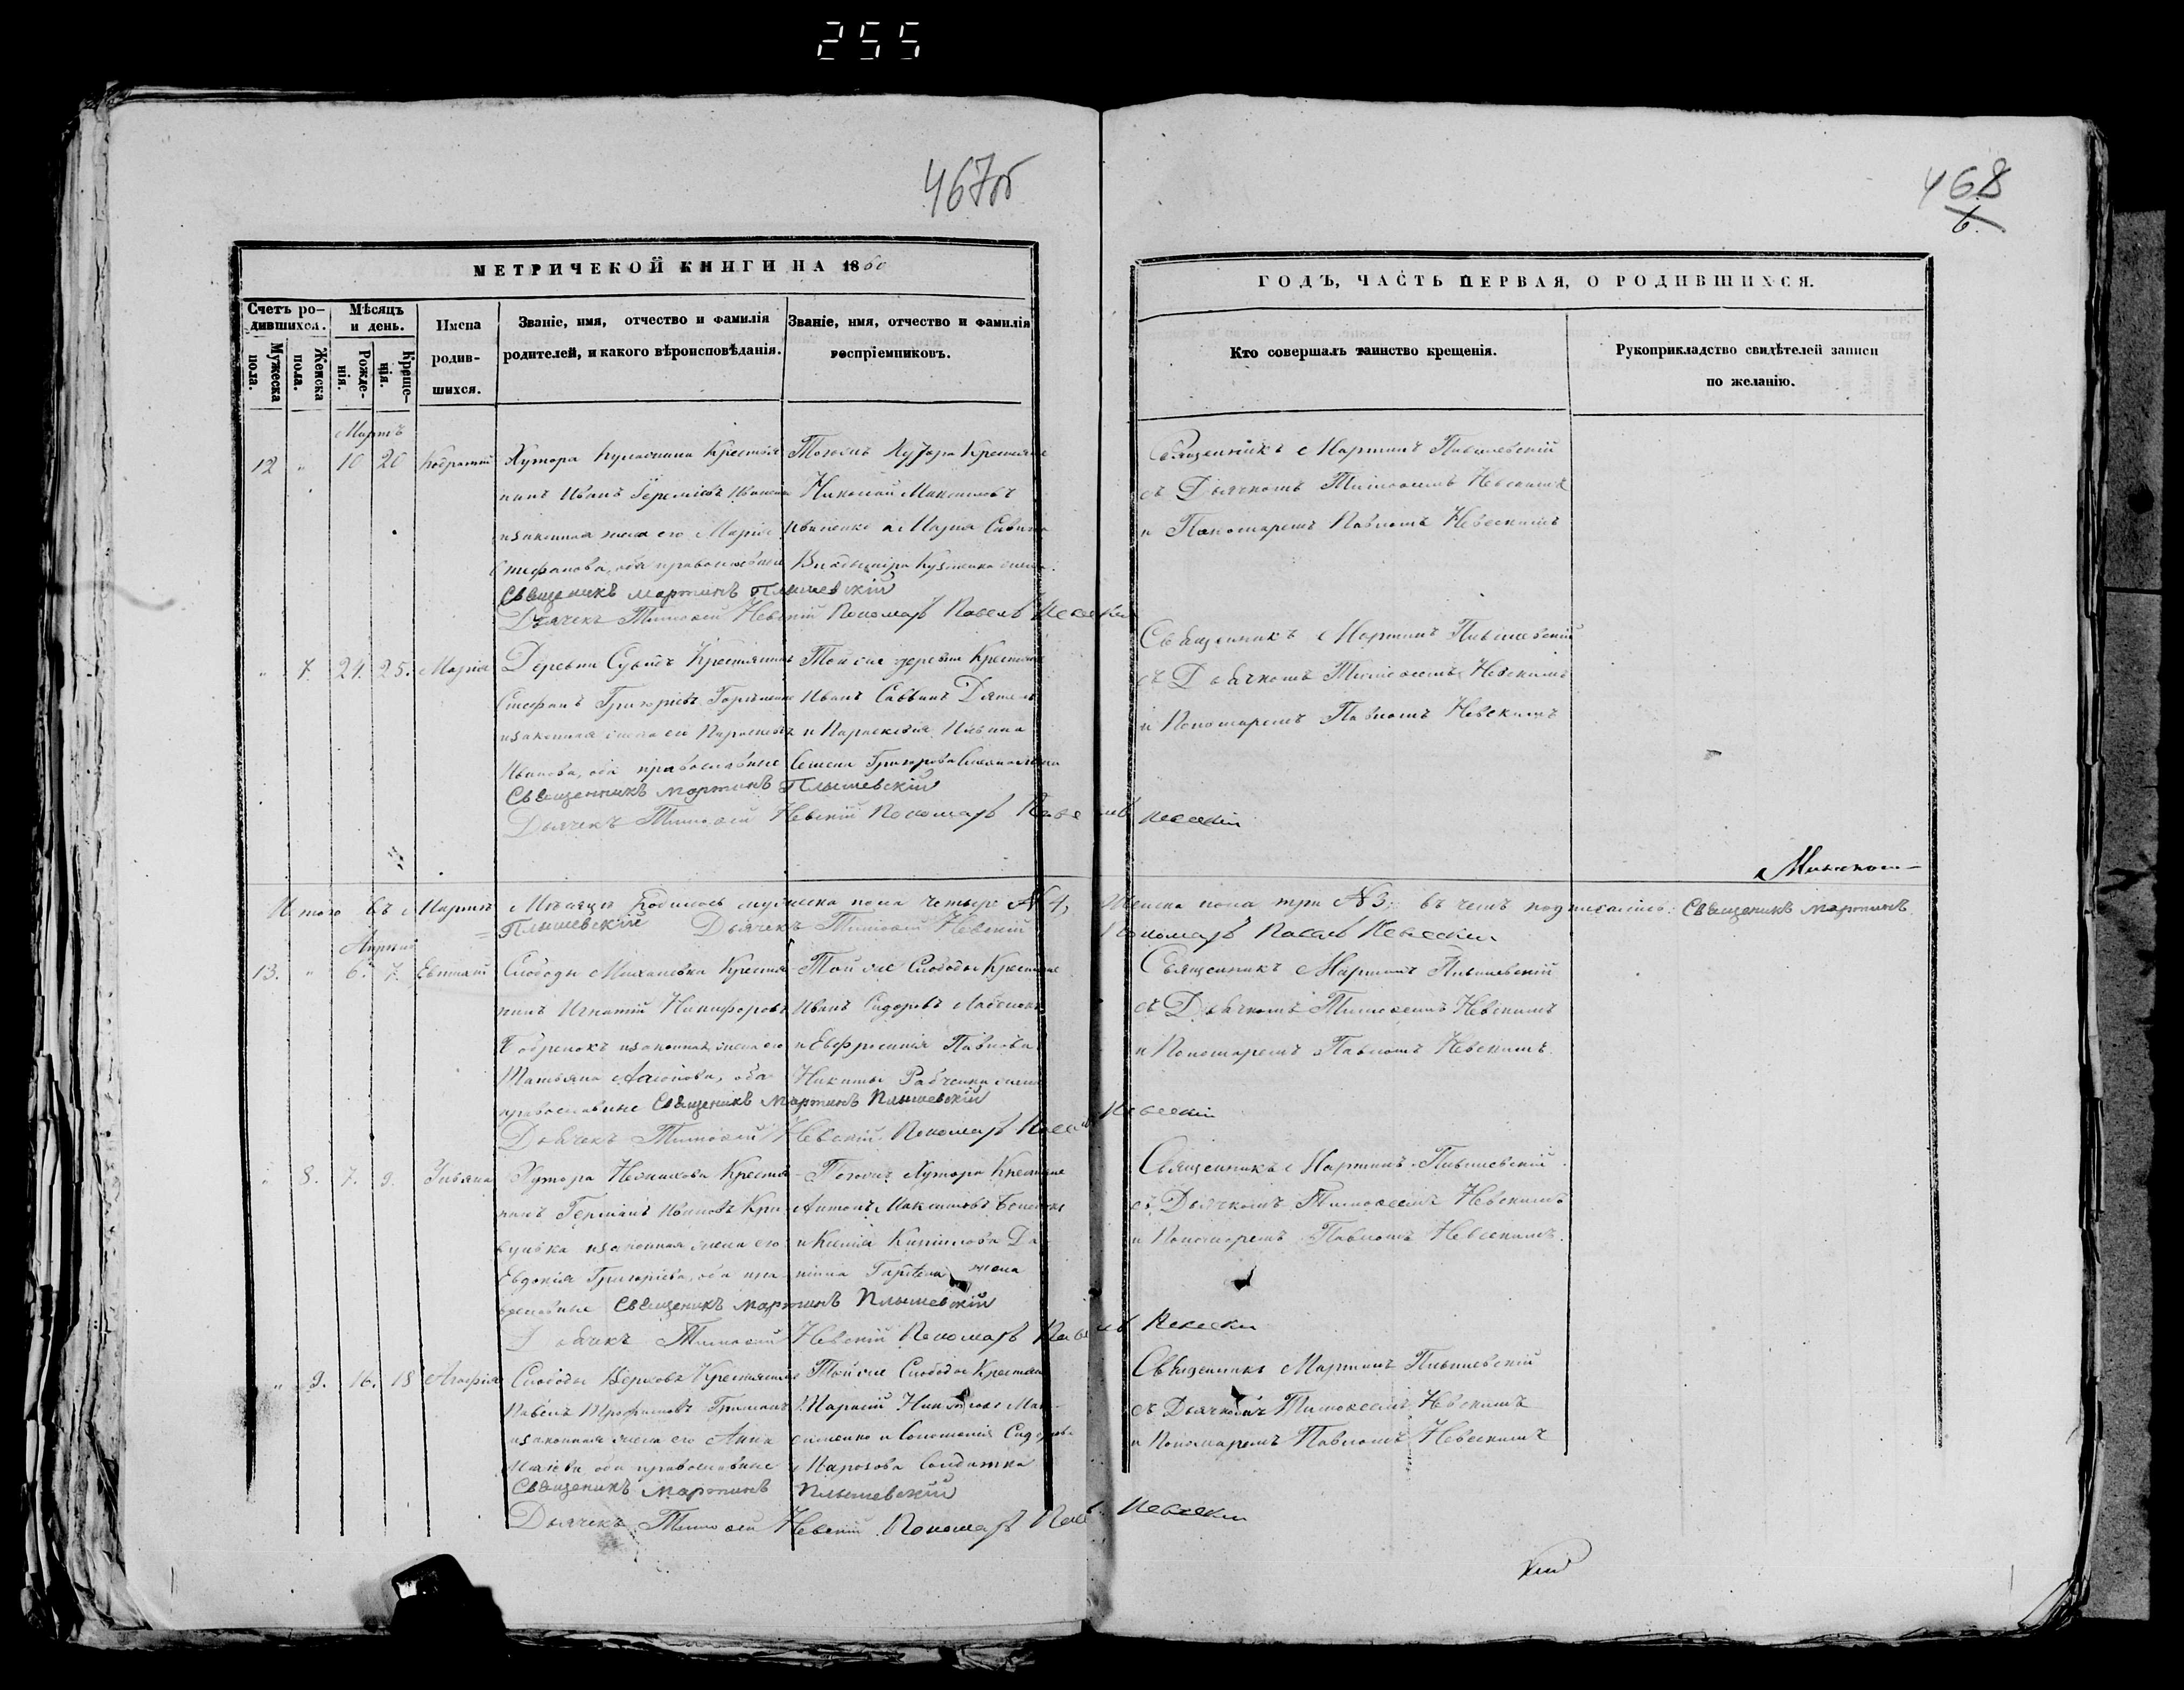 255
467об
468
6
МЕТРИЧЕКОЙ КНИГИ НА 1860
ГОДЪ, ЧАСТЬ ПЕРВАЯ, О РОДИВШИХСЯ.
Счетъ ро-
дившихся.
Мужеска
пола.
Женска
пола.
Мѣсяцъ
и день.
Рожде-
нія.
Креще-
нія.
Имена
родив-
шихся.
Званіе, имя, отчество и фамилія
родителей, и какого вѣроисповѣданія.
Званіе, имя, отчество и фамилія
воспріемниковъ.
Кто совершалъ таинство крещенія.
Рукоприкладство свидѣтелей записи
по желанію.
Мартъ
12 " 10 20 Кодратій Хутора Крестья-
нинъ Иванъ Іереміевъ
изаконная жена его Марія
Стефанова, оба православные
Священикъ Мартинъ Плышевскій
Дьячекъ Тимофей Невскій Пономарь Павелъ Невский
Тогожъ Хутора Крестьяне
Николай Максимовъ
Иваненко и Марія Савина
Владыміра Кузменка жена.
Священникъ Мартинъ Плышевскій
съ Дьячкомъ Тимофеемъ Невскимъ
и Пономаремъ Павломъ Невскимъ
" 7. 24. 25. Марія Деревни Крестьянинъ
Стефанъ Григоріевъ
изаконная жена его Параскева
Иванова, оба православные
Священникъ Мартинъ Плышевскій
Дьячекъ Тимофей Невскій Пономарь Павелъ Невский
Той же деревни Крестьяне
Иванъ Саввинъ
и Параскевія Ильина
Семена Григорова жена
Священникъ Мартинъ Плышевскій
съ Дьячкомъ Тимофеемъ Невскимъ
и Пономаремъ Павломъ Невскимъ
Итого въ Мартѣ Мѣсяцѣ Родилось мужеска пола четыре № 4, Женска пола три № 3. въ чемъ подписались: Священикъ Мартинъ
Плышевскій Дьячекъ Тимофей Невскій Пономарь Павелъ Невский
Апрель
13. " 6. 7. Евтихій Слободы Михаловки Крестья-
нинъ Игнатій Никифоровъ
Бобренокъ изаконная жена его
Татьяна оба
православные Священикъ Мартинъ Плышевскій
Дьячекъ Тимофей Невскій. Пономарь Павелъ Невский
Той же Слободы Крестьяне
Иванъ Сидоровъ
и Евфросинія Павлова
Никиты Рабченка жена
Священникъ Мартинъ Плышевскій
съ Дьячкомъ Тимофеемъ Невскимъ
и Пономаремъ Павломъ Невскимъ.
" 8. 7. 9. Уліяна Хутора Крестья-
нинъ Германъ Ивановъ Кри-
вулька изаконная жена его
Евдокія Григоріева, оба пра-
вославные Священикъ Мартинъ Плышевскій
Дьячекъ Тимофей Невскій Пономарь Павелъ Невский
Тогожъ Хутора Крестьяне
Антонъ Максимовъ
и Ксенія Кирилова
жена
Священникъ Мартинъ Плышевскій
съ Дьячкомъ Тимофеемъ Невскимъ
и Пономаремъ Павломъ Невскимъ.
" 9. 16. 18 Агафія Слободы Крестьянинъ
Павелъ Трофимовъ
изаконная жена его Анна
оба православные
Священикъ Мартинъ Плышевскій
Дьячекъ Тимофей Невскій. Пономарь Павелъ Невский
Той же Слободы Крестьяне
и Соломонія Сидорова
Марозова Солдатка
Священникъ Мартинъ Плышевскій
съ Дьячкомъ Тимофеемъ Невскимъ
и Пономаремъ Павломъ Невскимъ